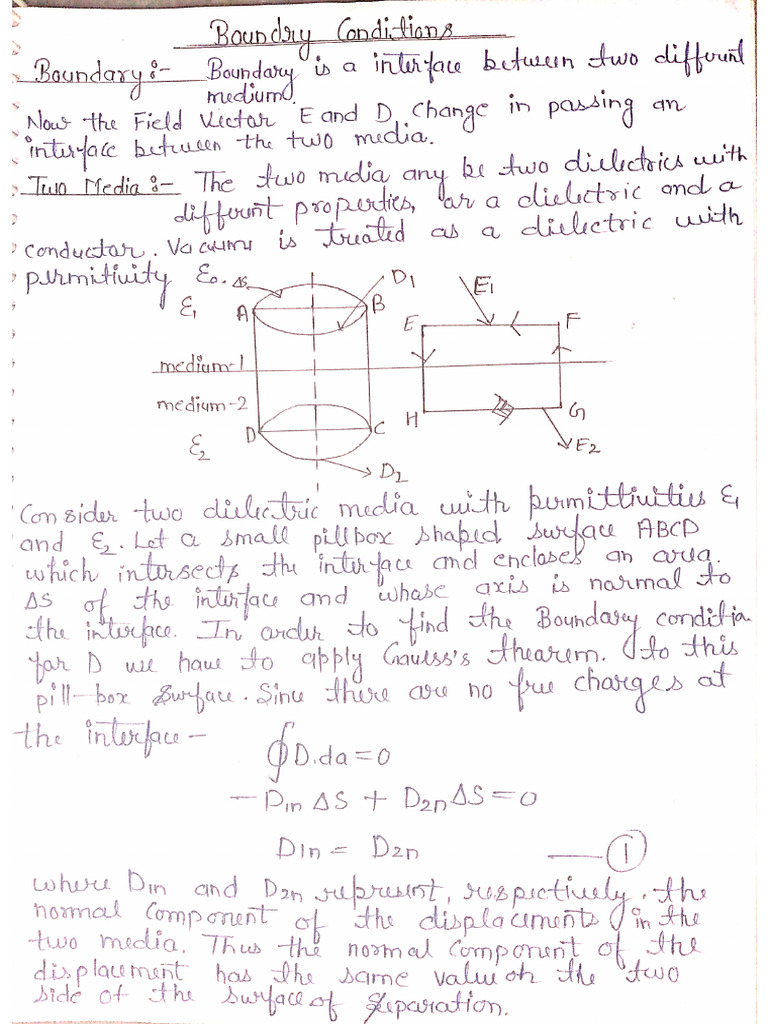 Boundry Conditions
Boundary :- Boundary is a interface between two different
medium.
Now the Field Vector E and D, Change in passing an
interface between the two media.
Two Media :- The two media any be two dielectrics with
different properties, or a dielectric and a
conductor. Vacuum is treated as a dielectric with
permitivity ε₀.
ΔS
D₁
E₁
ε₁
A
B
E
F
medium-1
medium-2
H
G
D
C
ε₂
E₂
D₂
Consider two dielectric media with permittivities ε₁
and ε₂. Let a small pillbox shaped surface ABCD
which intersects the interface and encloses an area.
ΔS of the interface and whose axis is normal to
the interface. In order to find the Boundary conditio
for D we have to apply Gauss's theorem. to this
pill-box surface. Since there are no free charges at
the interface -
∮D.da = 0
- D₁n ΔS + D₂n ΔS = 0
D₁n = D₂n —— ①
where D₁n and D₂n represent, respectively, the
normal component of the displacements in the
two media. Thus the normal component of the
displacement has the same value on the two
side of the surface of separation.